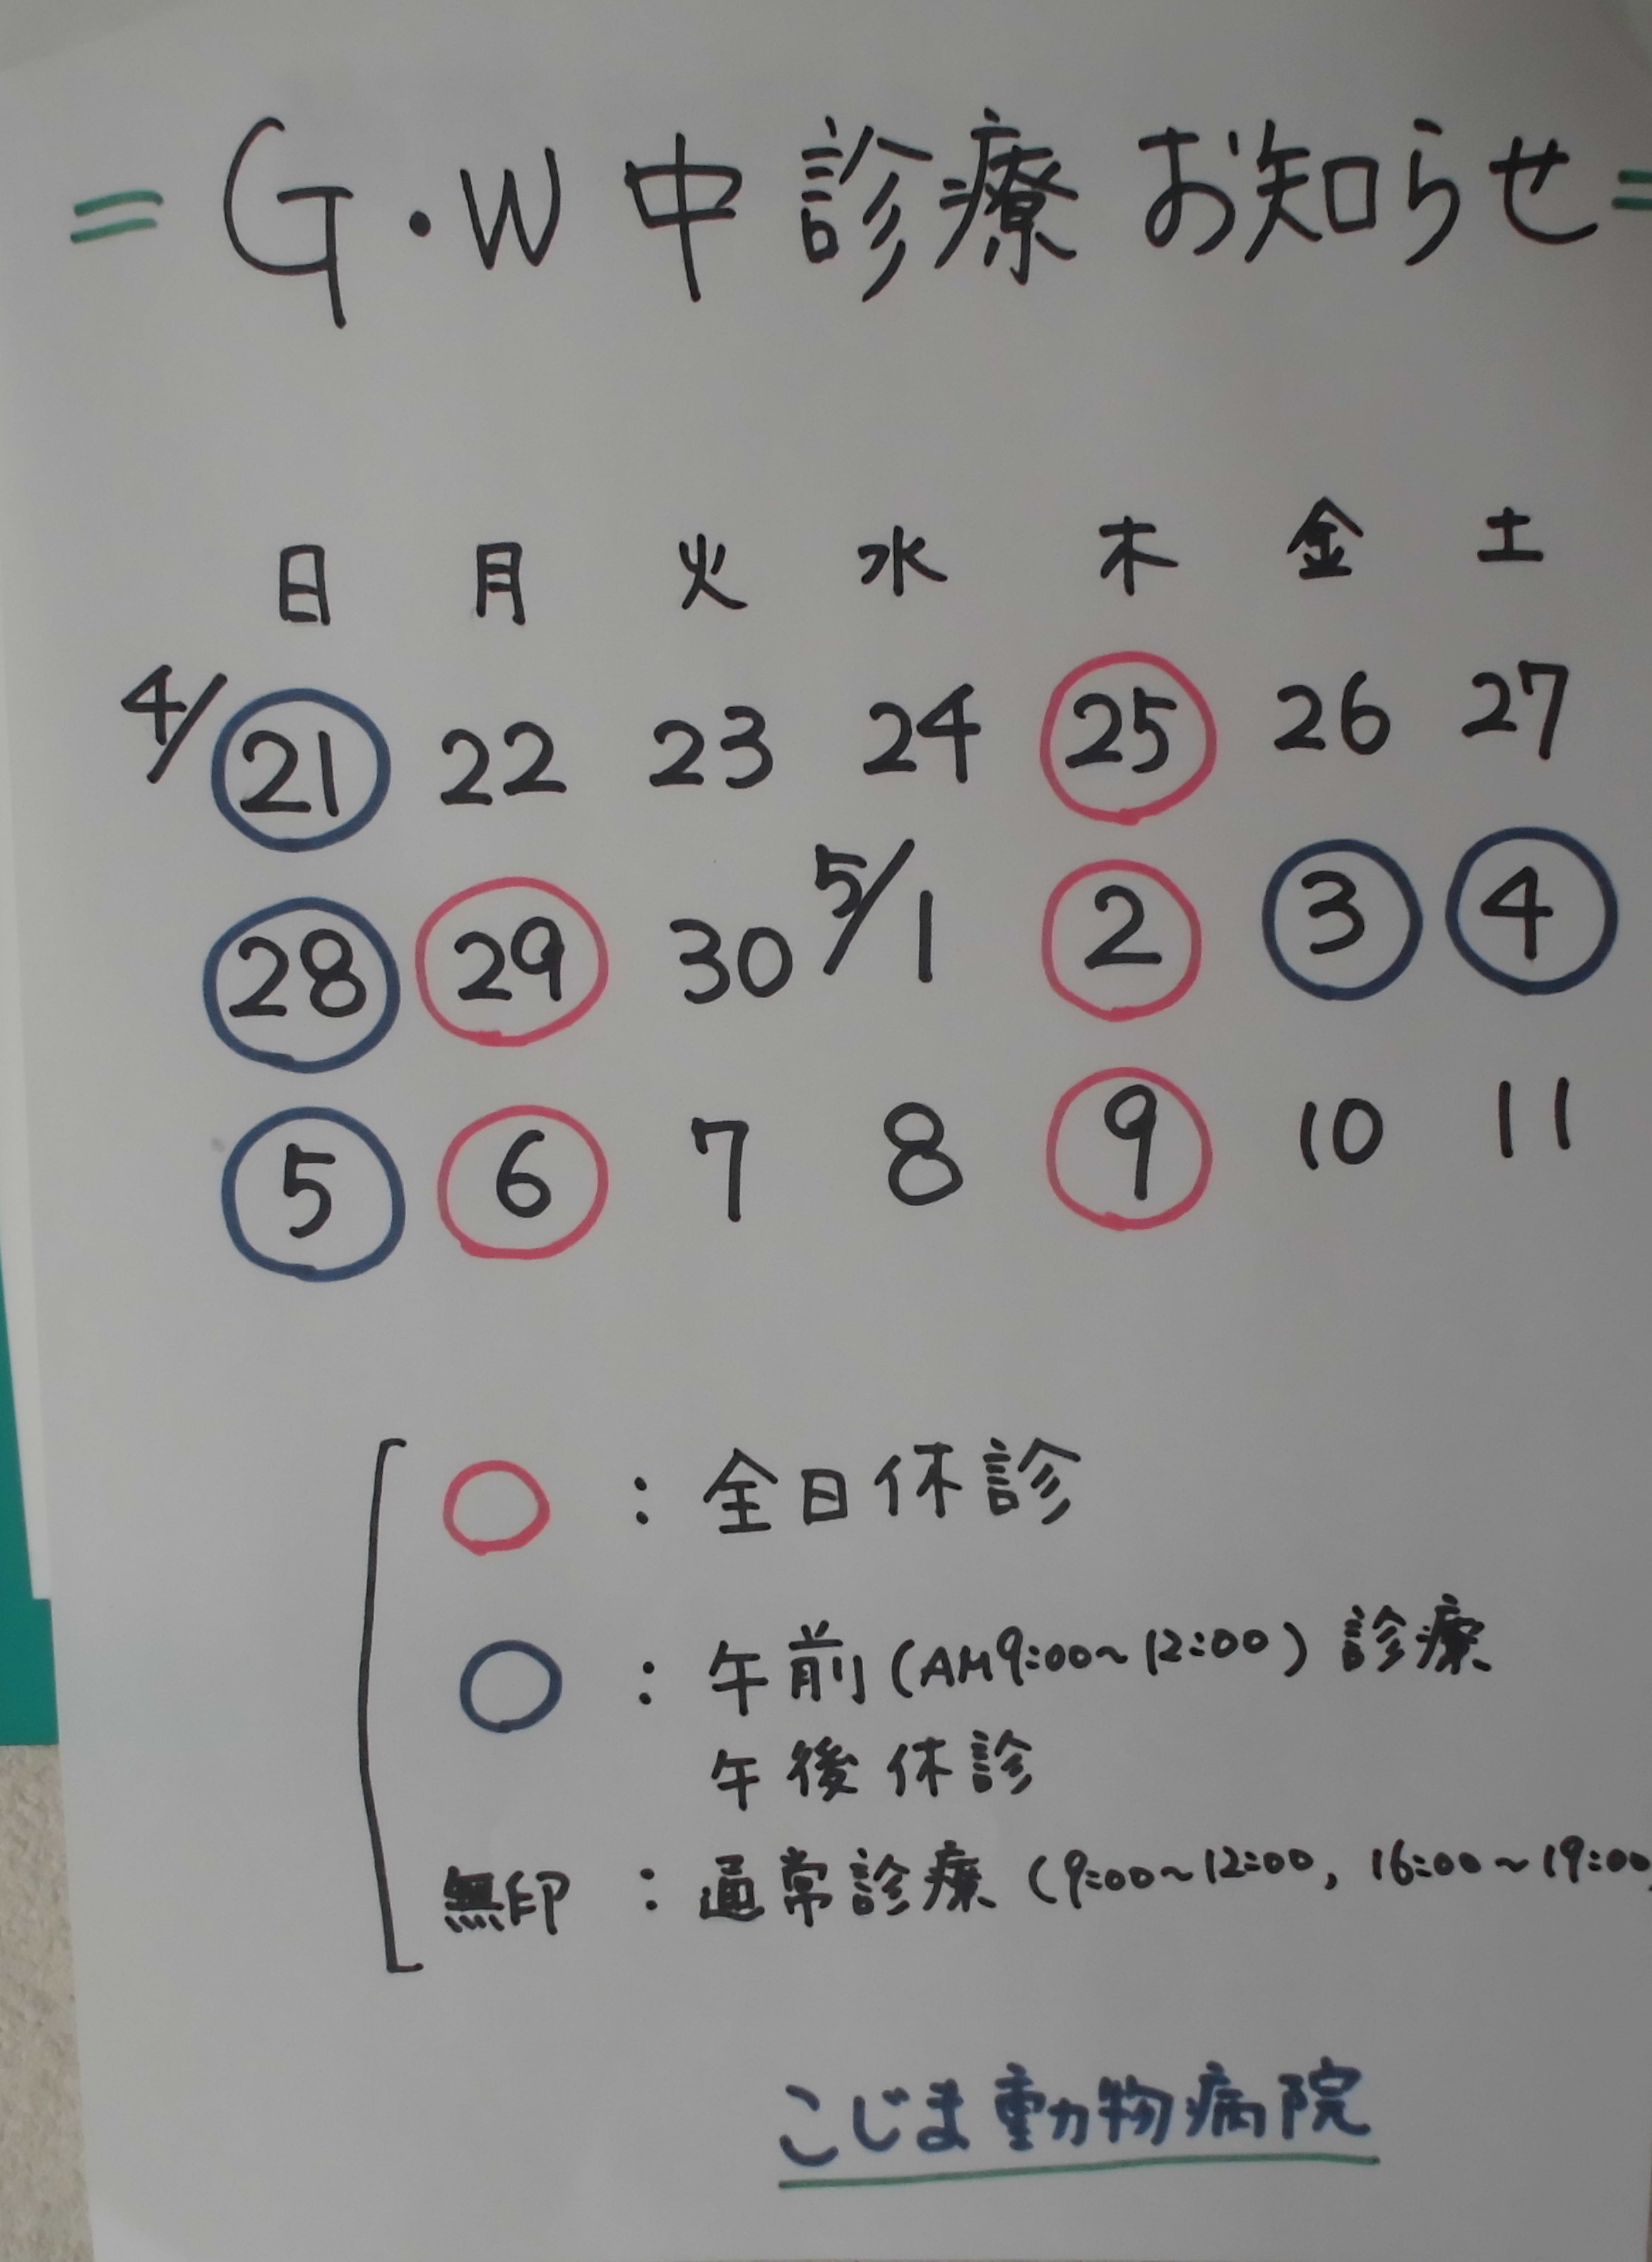 = G・W中 診療 お知らせ =
日 月 火 水 木 金 土
4/21 22 23 24 25 26 27
28 29 30 5/1 2 3 4
5 6 7 8 9 10 11
○ : 全日休診
○ : 午前(AM9:00~12:00) 診療
午後休診
無印 : 通常診療 (9:00~12:00, 16:00~19:00)
こじま動物病院